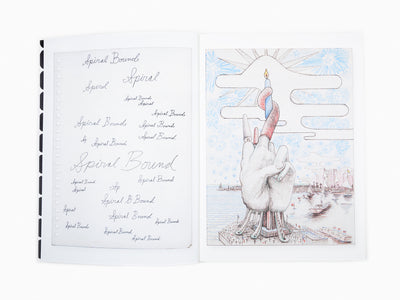 Spiral Bound
Spiral
Spiral
Spiral Bound
Spiral
Spiral Bound
Spiral Bound
Spiral Bound
Spiral Bound
Sp
Spiral Bound
Spiral Bound
Spiral Bound
Spiral Bound
Sp
Spiral Bound
Spiral B Bound
Spiral
Spiral Bound
Spiral Bound
Spiral Bound
Spiral Bound
Spiral Bound